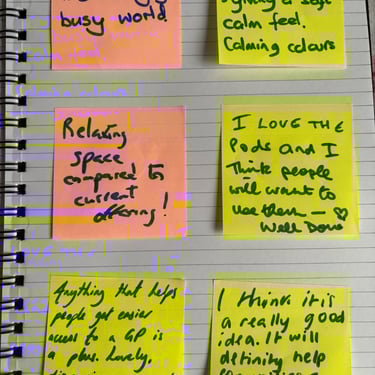 busy world
calm feel.
Calming colours
Relaxing
space
compared to
current
offering!
I LOVE THE
Pods and I
Think people
will want to
use them — ♡
Well Done
Anything that helps
people get easier
access to a GP is
a plus. Lovely.
I think it is
a really good
idea. It will
definity help